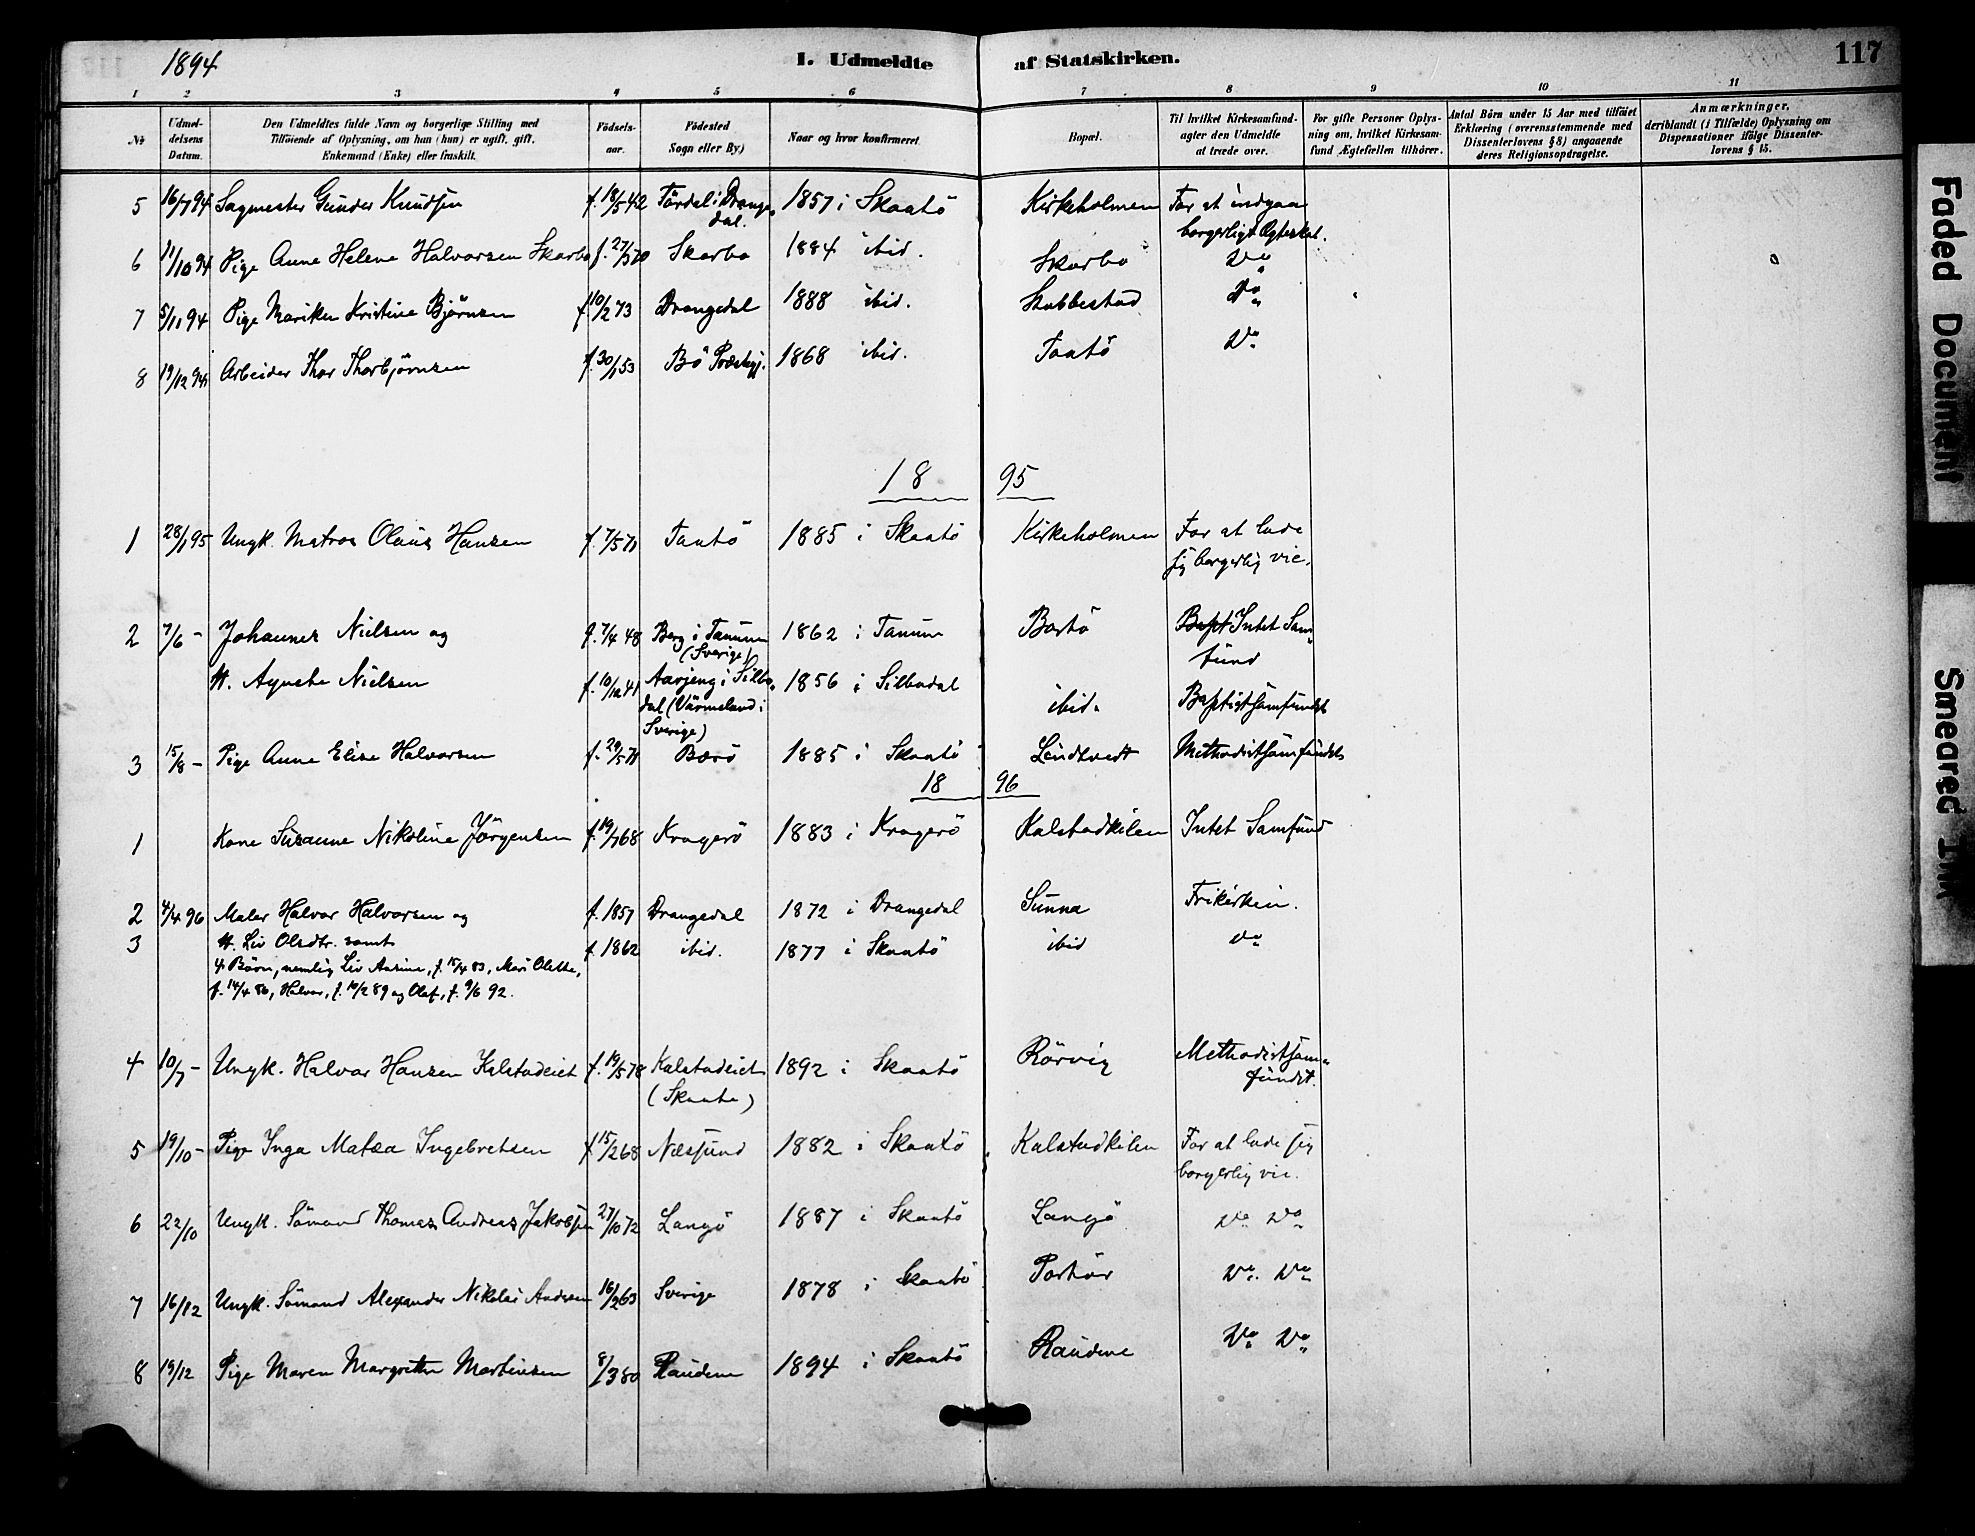 1894 I. Udmeldte af Statskirken. 117
1 2 3 4 5 6 7 8 9 10 11
№ Udmeldelsens Datum. Den Udmeldtes fulde Navn og borgerlige Stilling med Tilføiende af Oplysning, om han (hun) er ugift, gift, Enkemand (Enke) eller fraskilt. Fødselsaar. Fødested Sogn eller By) Naar og hvor konfirmeret Bopæl. Til hvilket Kirkesamfund agter den Udmeldte at træde over. For gifte Personer Oplysning om, hvilket Kirkesamfund Ægtefællen tilhører. Antal Börn under 15 Aar med tilføiet Erklæring (overensstemmende med Dissenterlovens § 8) angaaende deres Religionsopdragelse. Anmærkninger, deriblandt (i Tilfælde) Oplysning om Dispensationer ifølge Dissenterlovens § 15.
5 16/7 94 Sagmester Gunder Knudsen f. 18/5 42 Tördal i Drange- 1857 i Skaatö Kirkeholmen For at indgaa
dal. borgerligt Ægteskab.
6 11/10 94 Pige Anne Helene Halvorsen Skarbo f. 27/5 70 Skarbo 1884 ibid. Skarbo Do
7 5/11 94 Pige Mariken Kristine Bjørnsen f. 10/2 73 Drangedal 1888 ibid. Stabbestad Do
8 19/12 94 Arbeider Thor Thorbjørnsen f. 30/1 53 Bö Præstegj. 1868 ibid. Taatö Do
18 95
1 28/1 95 Ungk. Matros Olaus Hansen f. 7/5 71 Taatö 1885 i Skaatö Kirkeholmen For at lade
sig borgerlig vie.
2 7/6 - Johannes Nielsen og f. 7/4 48 Berg i Tanum 1862 i Tanum Bartö Bapt Intet Sam-
(Sverige) fund
H. Agnethe Nielsen f. 10/12 41 Aarjeng i Silbo- 1856 i Silbodal ibid. Baptistsamfundet
dal (Värmeland i
Sverige)
3 15/8 - Pige Anne Elise Halvorsen f. 29/5 71 Bærö 1885 i Skaatö Lindtvedt Methodistsamfundet
18 96
1 Kone Susanne Nikoline Jörgensen f. 19/7 68 Kragerö 1883 i Kragerö Kalstadkilen Intet Samfund
2 4/4 96 Maler Halvor Halvorsen og f. 1857 Drangedal 1872 i Drangedal Sunna Frikirken.
3 H. Liv Olsdtr. samt f. 1862 ibid. 1877 i Skaatö ibid do
4 Börn, nemlig Liv Aasine, f. 15/4 83, Mari Olette,
f. 14/4 86, Halvor, f. 10/2 89 og Olaf, f. 9/6 92.
4 10/7 - Ungk. Halvor Hansen Kalstadeiet f. 19/5 78 Kalstadeiet 1892 i Skaatö Rörvig Methodistsam-
(Skaatø) fundet.
5 19/10 - Pige Inga Matea Ingebretsen f 15/2 68 Næssund 1882 i Skaatö Kalstadkilen For at lade sig
borgerlig vie.
6 22/10 Ungk. Sömand Thomas Andreas Jakobsen 27/10 72 Langö 1887 i Skaatö Langö Do Do
7 16/12 Ungk. Sömand Alexander Nikolai Andersen 16/2 63 Sverige 1878 i Skaatö Portör Do. Do
8 19/12 Pige Maren Margrethe Martinsen 8/3 80 Raudene 1894 i Skaatö Raudene Do Do
Faded Document
Smeared Ink